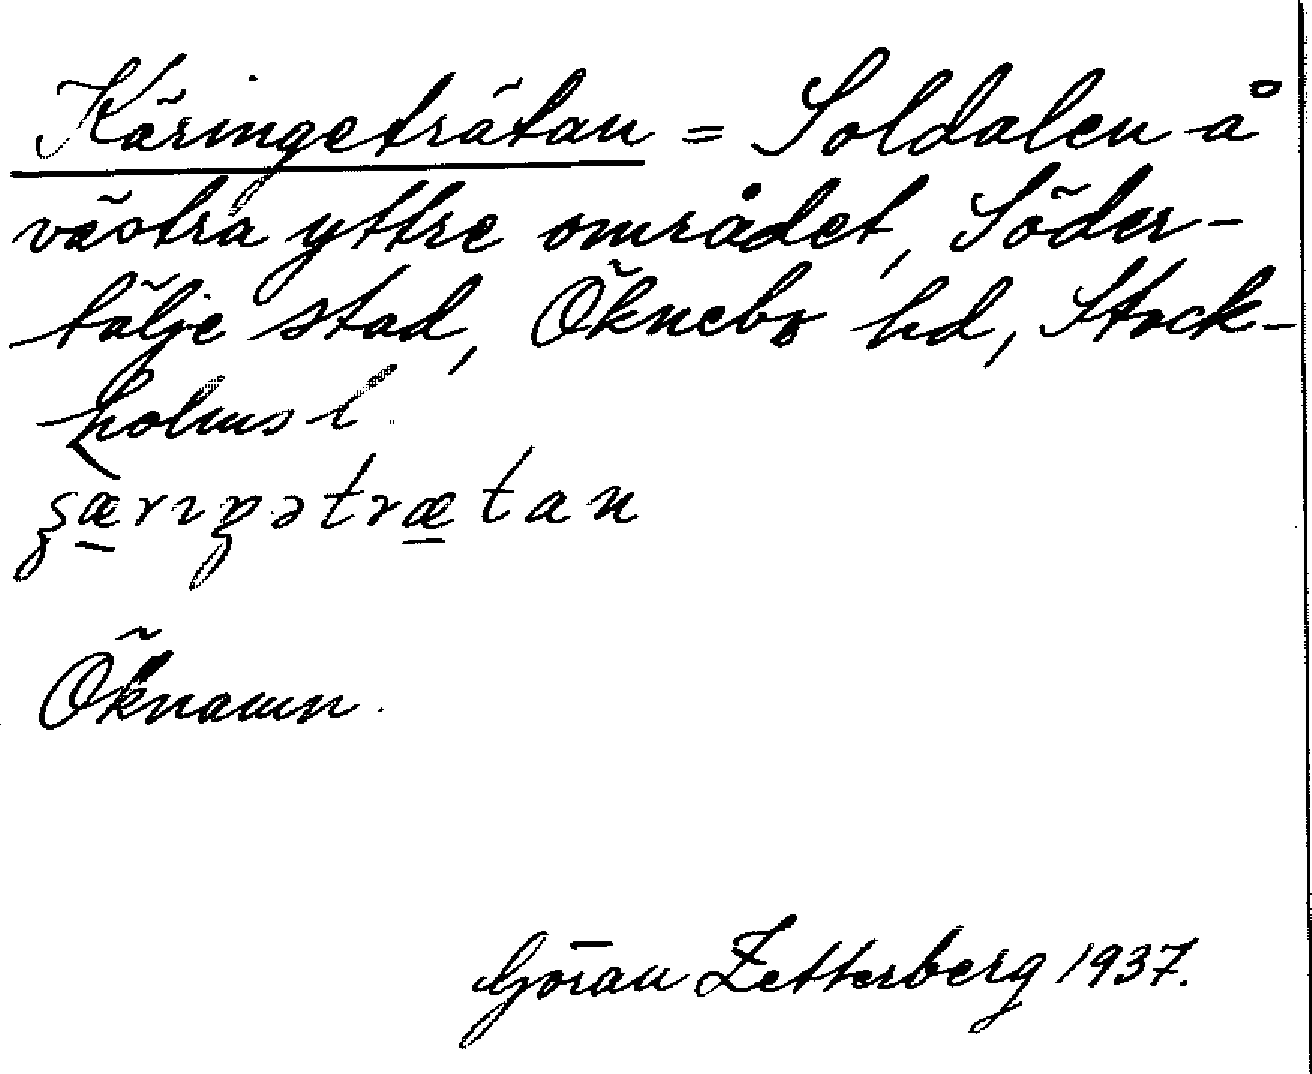 Käringeträtan = Soldalen å
västra yttre området, Söder-
tälje stad, Öknebo hd, Stock-
holms l.
Öknamn.
Göran Zetterberg 1937.